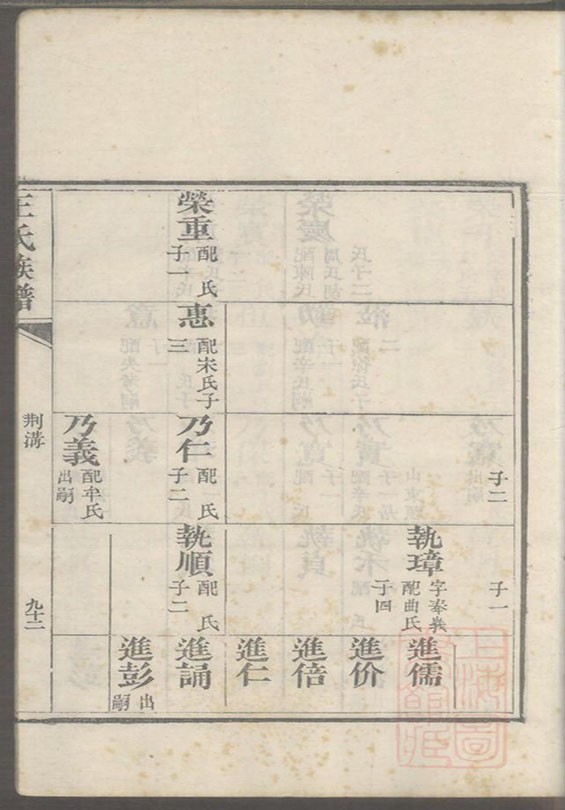 子二
子一
執璋
字奉義
配曲氏
子四
進儒
進价
進倍
進仁
榮重
配 氏
子一
惠
配宋氏子
三
乃仁
配 氏
子二
執順
配 氏
子二
進誦
進彭
出
嗣
乃義
配牟氏
出嗣
王氏族譜
荆溝
九十二